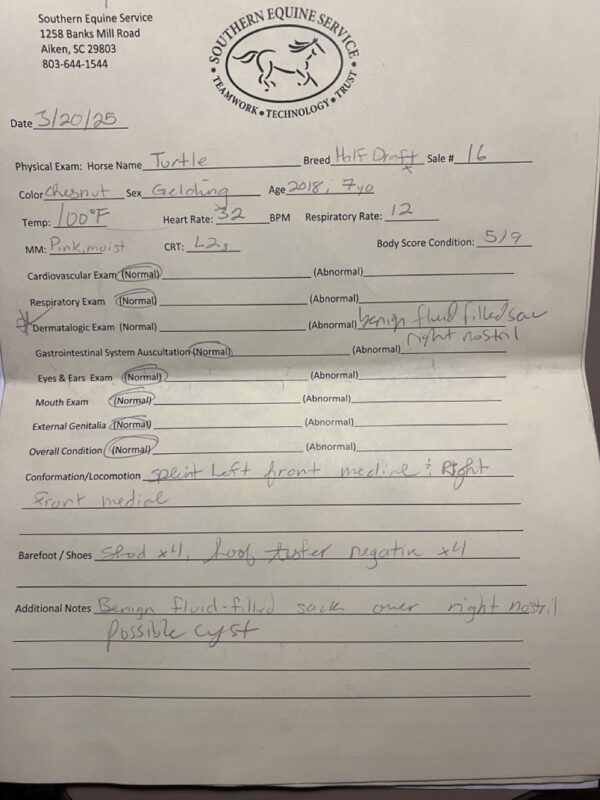 Southern Equine Service
1258 Banks Mill Road
Aiken, SC 29803
803-644-1544
SOUTHERN EQUINE SERVICE
• TEAMWORK • TECHNOLOGY • TRUST •
Date 3/20/25
Physical Exam: Horse Name Turtle Breed Half Draft Sale # 16
Color Chesnut Sex Gelding Age 2018, 7yo
Temp: 100°F Heart Rate: 32 BPM Respiratory Rate: 12
MM: Pink, moist CRT: <2s Body Score Condition: 5/9
Cardiovascular Exam (Normal) (Abnormal)
Respiratory Exam (Normal) (Abnormal)
Dermatologic Exam (Normal) (Abnormal) benign fluid filled sac
right nostril
Gastrointestinal System Auscultation (Normal) (Abnormal)
Eyes & Ears Exam (Normal) (Abnormal)
Mouth Exam (Normal) (Abnormal)
External Genitalia (Normal) (Abnormal)
Overall Condition (Normal) (Abnormal)
Conformation/Locomotion splint left front medial & Right
front medial
Barefoot / Shoes Shod x4, hoof tester negative x4
Additional Notes Benign fluid-filled sack over right nostril
possible cyst